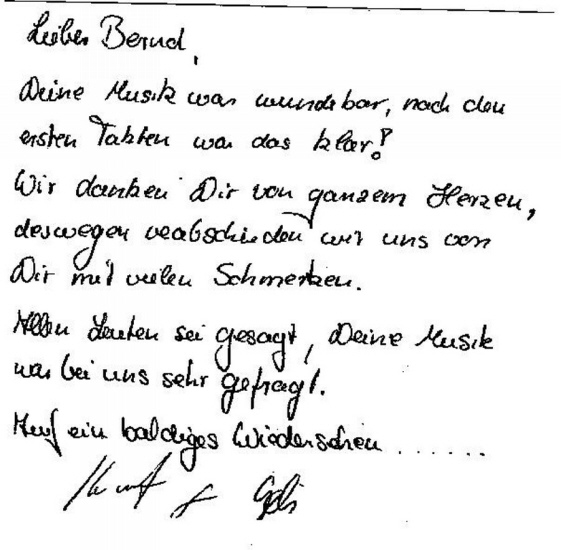 Lieber Bernd,
Deine Musik war wunderbar, nach den
ersten Takten war das klar!
Wir danken Dir von ganzem Herzen,
deswegen verabschieden wir uns von
Dir mit vielen Schmerzen.
Allen Leuten sei gesagt, Deine Musik
war bei uns sehr gefragt.
Auf ein baldiges Wiedersehen .......